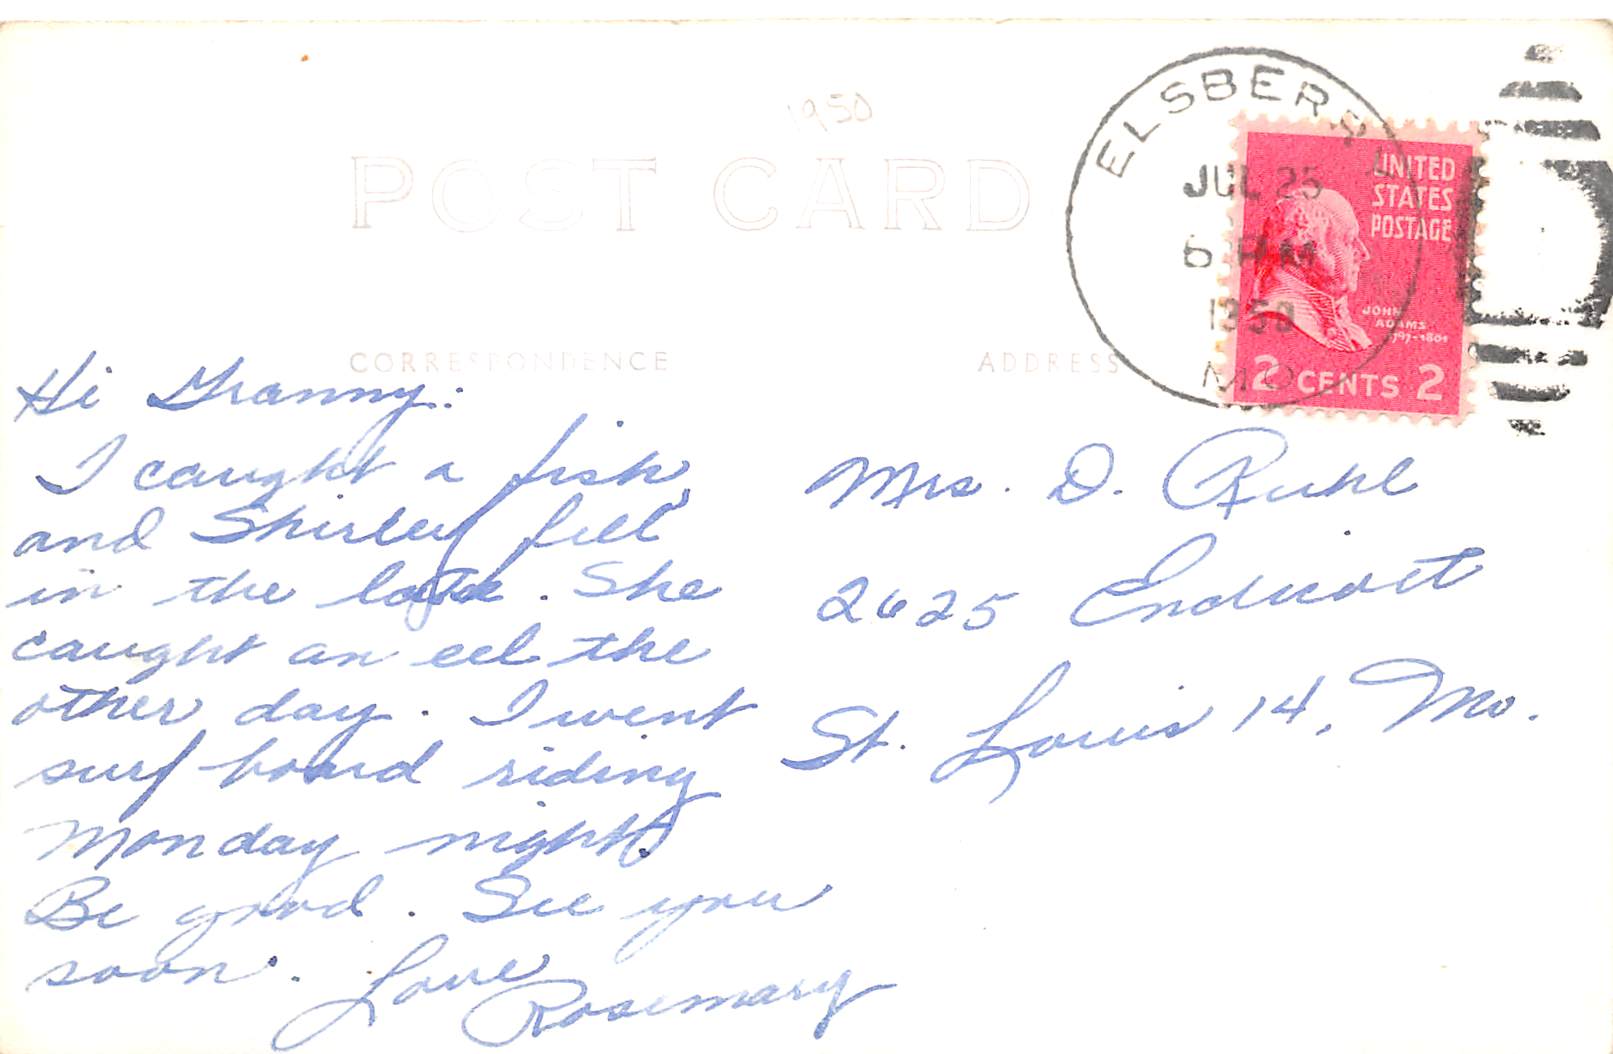 1950
POST CARD
ELSBERRY
JUL 25
6 PM
1950
MO
UNITED
STATES
POSTAGE
JOHN
ADAMS
1797-1801
2 CENTS 2
CORRESPONDENCE
ADDRESS
Hi Granny:
I caught a fish,
and Shirley fell
in the lake. She
caught an eel the
other day. I went
surf board riding
Monday night.
Be good. See you
soon. Love
Rosemary
Mrs. D. Ruhl
2625 Endicott
St. Louis 14, Mo.